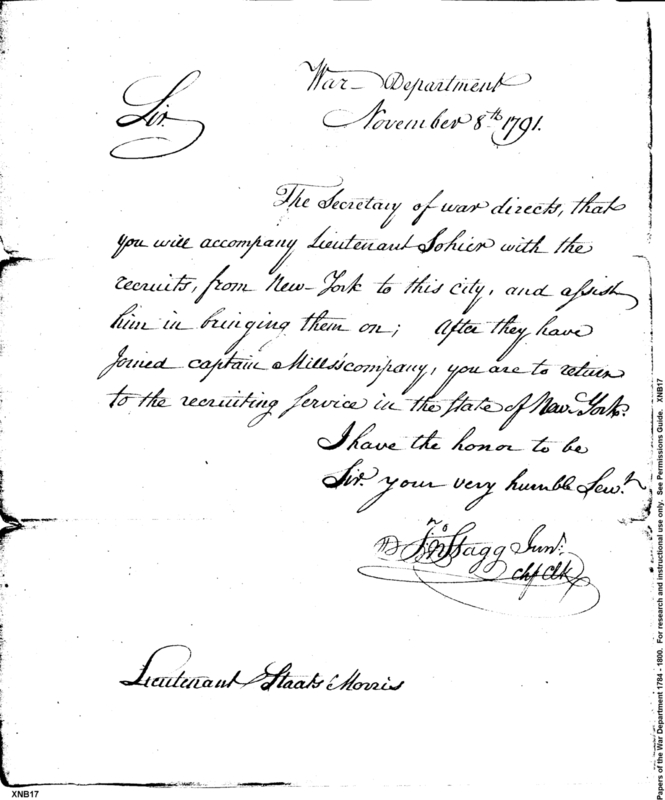 War Department
Sir.
November 8th 1791.
The Secretary of war directs, that
you will accompany Lieutenant Sohier with the
recruits, from New-York to this city, and assist
him in bringing them on; After they have
Joined captain Mills's company, you are to return
to the recruiting service in the State of New York.
I have the honor to be
Sir. your very humble Serv.t
Jno Stagg Junr.
chf Clk
Lieutenant Staats Morris
XNB17
Papers of the War Department 1784 - 1800. For research and instructional use only. See Permissions Guide. XNB17